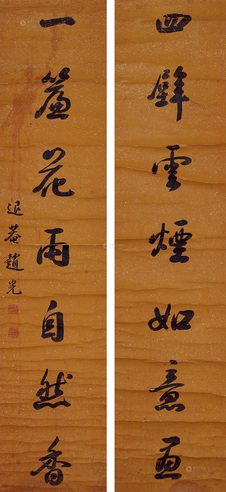 四壁雲煙如意畫
一簾花雨自然香
退菴趙光